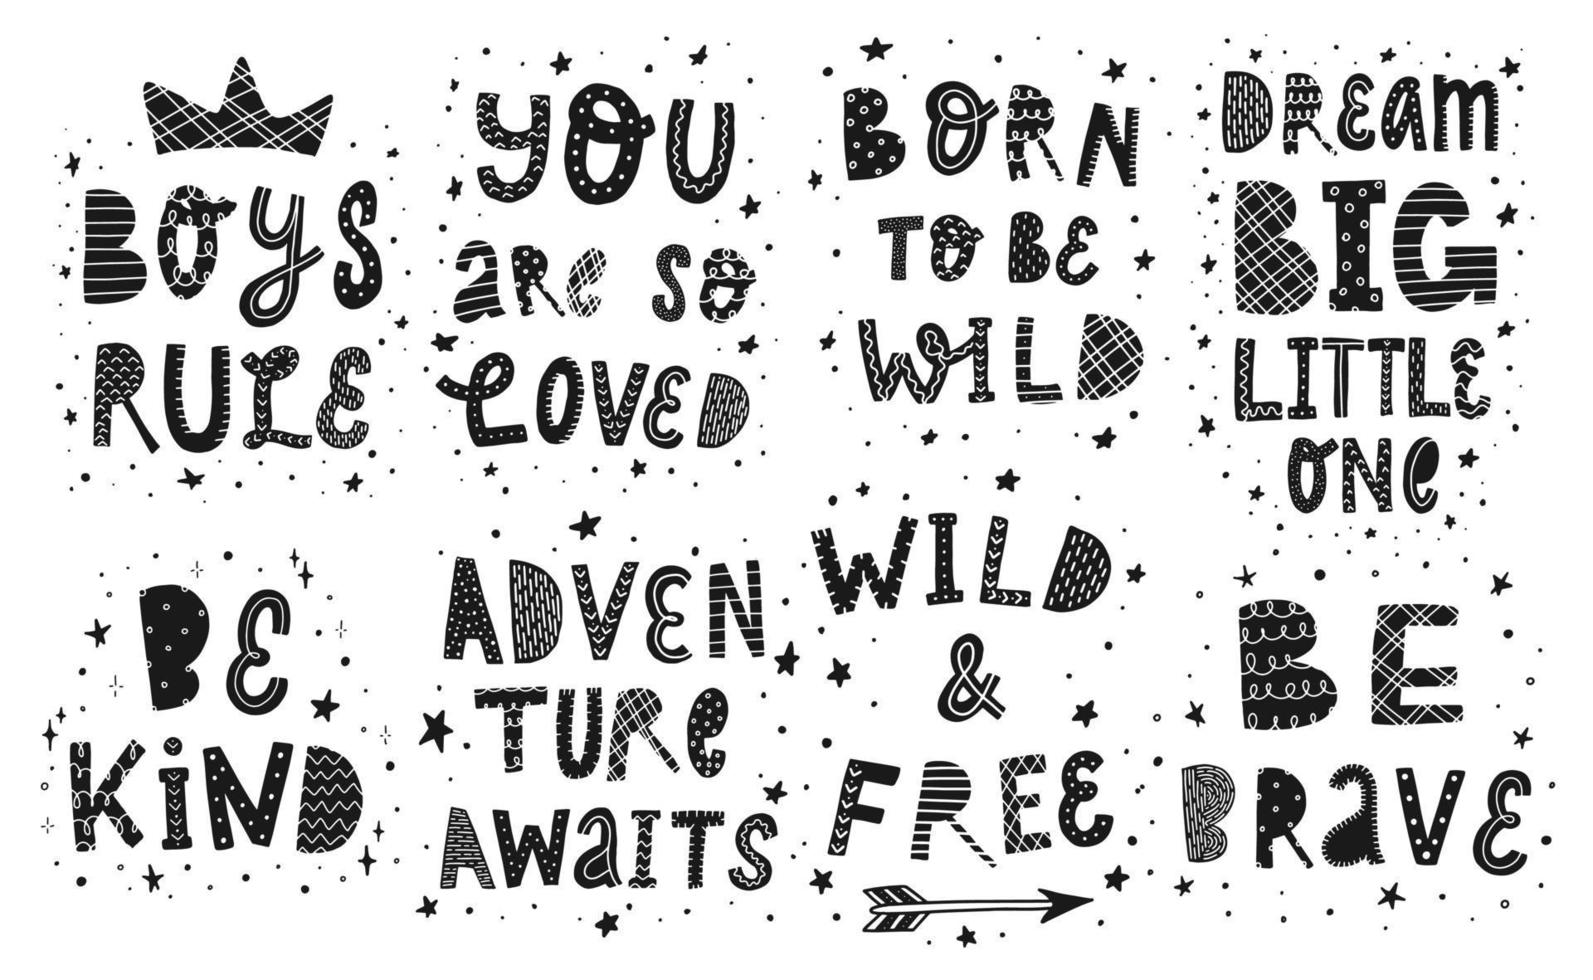 BOYS
RULE
YOU
are so
LOVED
BORN
TO BE
WILD
DREam
BIG
LITTLE
ONe
BE
KiND
ADVEN
TURe
AWaITS
WILD
&
FREE
BE
BRaVE